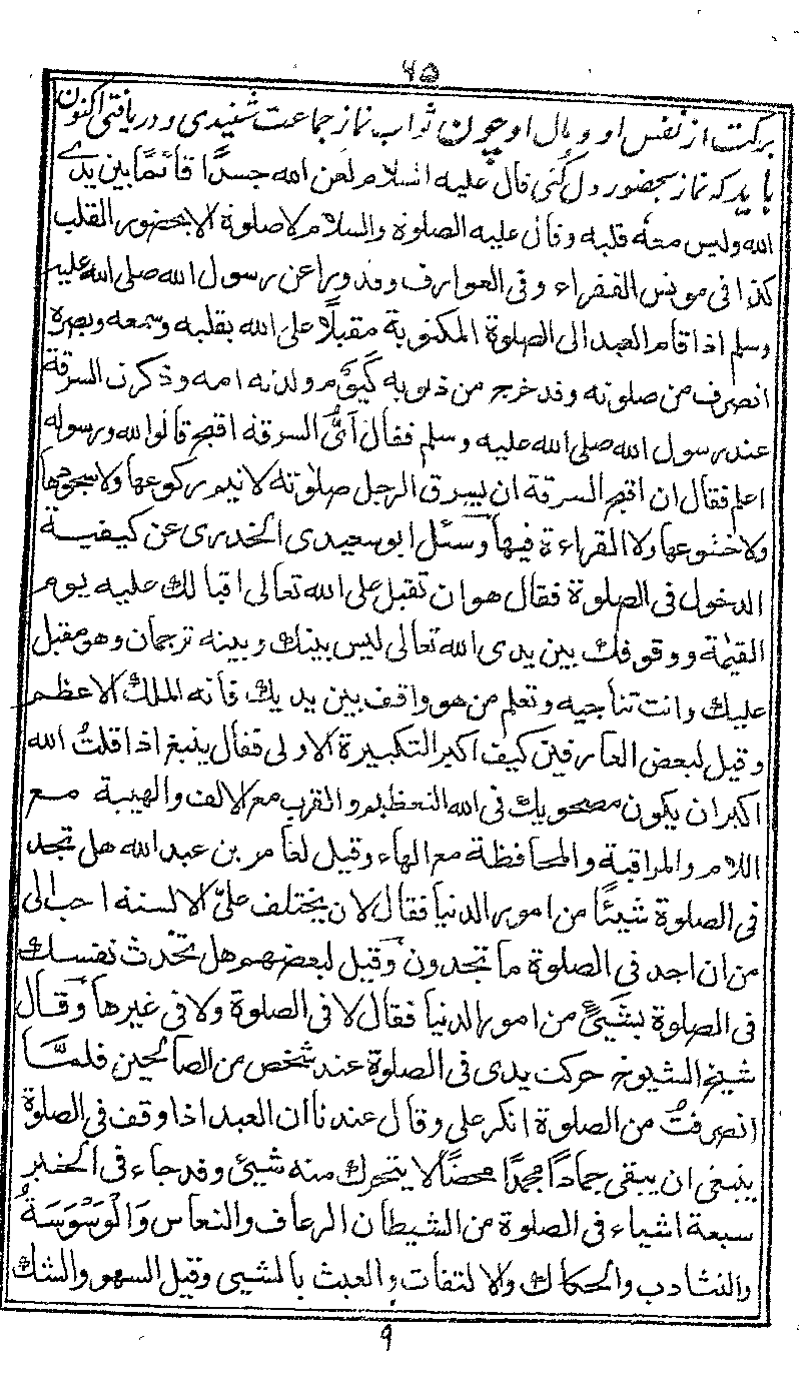 ۶۵
برکت از نفس او و بال او چون ثواب نماز جماعت شنیدی و دریافتی اکنون
باید که نماز بحضور دل کنی قال علیه السلام لعن الله جسدًا قائمًا بین یدے
الله ولیس معهٗ قلبه وقال علیه الصلوة والسلام لا صلوة الا بحضور القلب
کذا فی مونس الفقراء وفی العوارف وقد ورا عن رسول الله صلی الله علیه
وسلم اذا قام العبد الی الصلوة المکتوبة مقبلًا علی الله بقلبه وسمعه وبصره
انصرف من صلوته وقد خرج من ذنوبه کَیَوْمِ ولدته امه وذکرت السرقة
عند رسول الله صلی الله علیه وسلم فقال اَیُّ السرقة اقبح قالوا الله ورسوله
اعلم فقال ان اقبح السرقة ان یسرق الرجل صلوته لا یتم رکوعها ولا سجودها
ولا خشوعها ولا القراءة فیها وسئل ابو سعیدی الخدری عن کیفیة
الدخول فی الصلوة فقال هو ان تقبل علی الله تعالی اقبالك علیه یوم
القیٰمة ووقوفك بین یدی الله تعالی لیس بینك وبینه ترجمان وهو مقبل
علیك وانت تناجیه وتعلم من هو واقف بین یدیك فانه الملك الاعظم
وقیل لبعض العارفین کیف اکبر التکبیرة الاولی فقال ینبغ اذا قلتُ الله
اکبر ان یکون مصحوبك فی الله التعظیم والقرب مع الالف والهیبة مع
اللام والمراقبة والمحافظة مع الهاء وقیل لعامر بن عبد الله هل تجد
فی الصلوة شیئًا من امور الدنیا فقال لان یختلف علیّ الالسنة احب الی
من ان اجد فی الصلوة ما تجدون وقیل لبعضهم هل تحدث نفسك
فی الصلوة بشَیْئٍ من امور الدنیا فقال لا فی الصلوة ولا فی غیرها وقال
شیخ الشیوخ حرکت یدی فی الصلوة عند شخص من الصالحین فلمَّا
انصرفتُ من الصلوة انکر علی وقال عندنا ان العبد اذا وقف فی الصلوة
ینبغی ان یبقی جمادًا مجمدًا محضًا لا یتحرك منه شیئ وقد جاء فی الخبر
سبعة اشیاء فی الصلوة من الشیطان الرعاف والنعاس وَالْوَسْوَسَةُ
والتثاوب والحکاك والالتفات والعبث بالشیی وقیل السهو والشك
۹